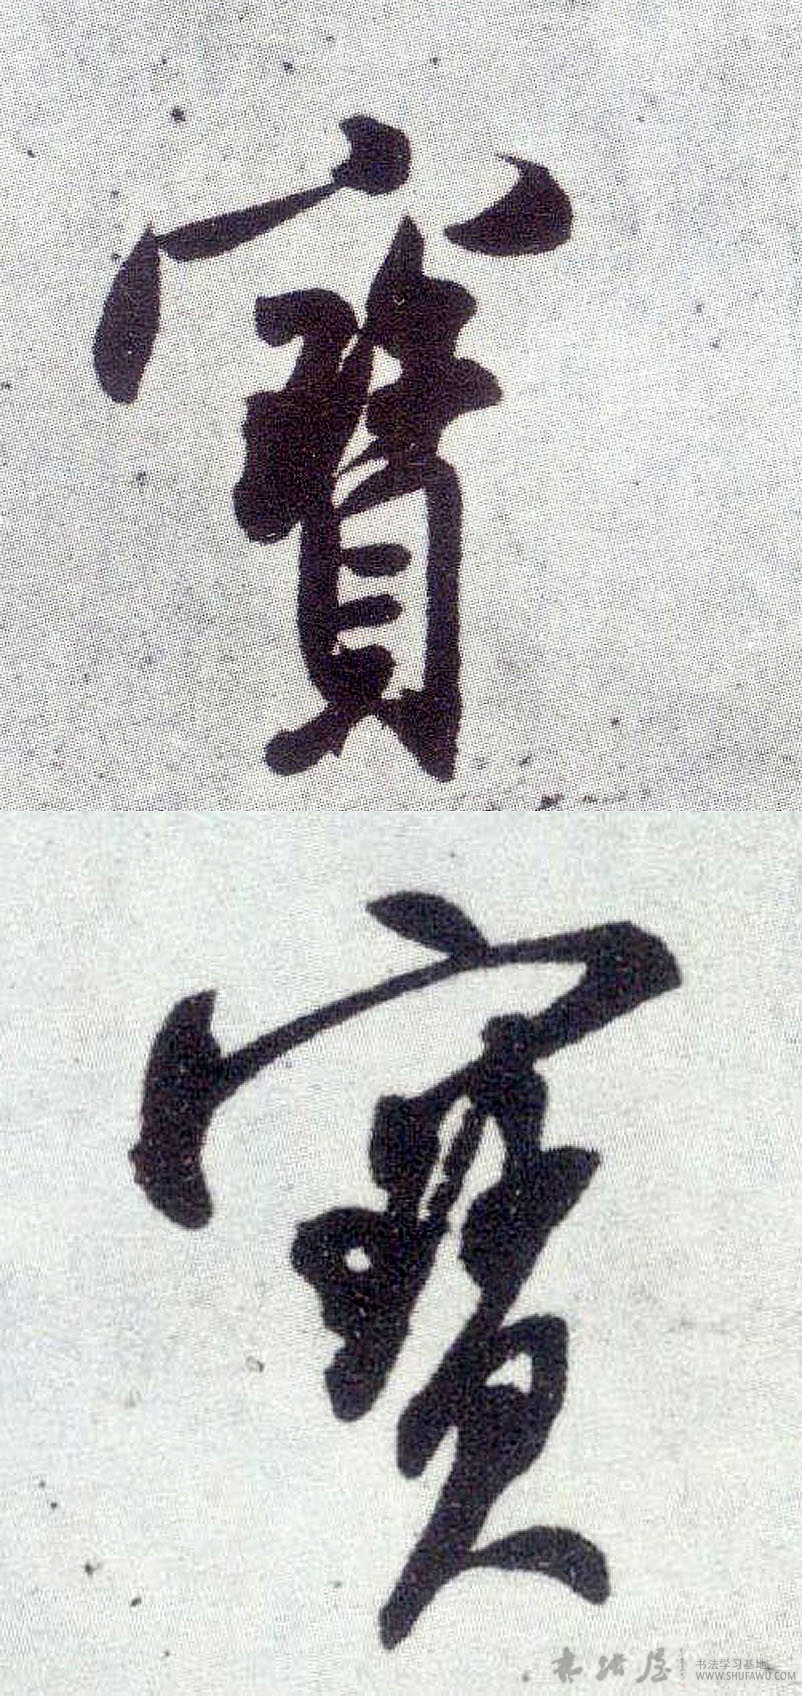 寶
寶
书法屋
书法学习基地
WWW.SHUFAWU.COM